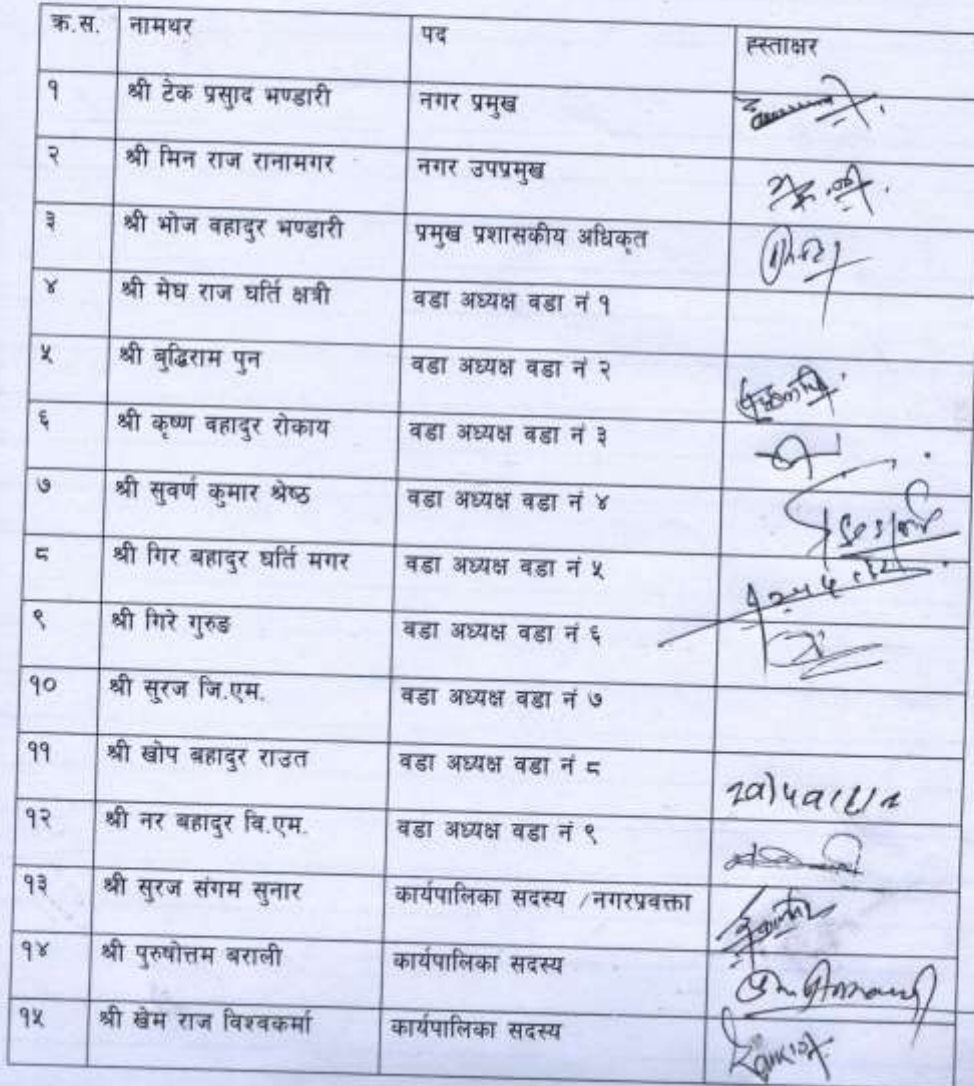 क्र.स. नामथर पद ह्स्ताक्षर
१ श्री टेक प्रसुाद भण्डारी नगर प्रमुख
२ श्री मिन राज रानामगर नगर उपप्रमुख
३ श्री भोज वहादुर भण्डारी प्रमुख प्रशासकीय अधिकृत
४ श्री मेघ राज घर्ति क्षत्री वडा अध्यक्ष वडा नं १
५ श्री बुद्धिराम पुन वडा अध्यक्ष वडा नं २
६ श्री कृष्ण वहादुर रोकाय वडा अध्यक्ष वडा नं ३
७ श्री सुवर्ण कुमार श्रेष्ठ वडा अध्यक्ष वडा नं ४
८ श्री गिर बहादुर घर्ति मगर वडा अध्यक्ष वडा नं ५
९ श्री गिरे गुरुङ वडा अध्यक्ष वडा नं ६
१० श्री सुरज जि.एम. वडा अध्यक्ष वडा नं ७
११ श्री खोप बहादुर राउत वडा अध्यक्ष वडा नं ८
१२ श्री नर बहादुर वि.एम. वडा अध्यक्ष वडा नं ९
१३ श्री सुरज संगम सुनार कार्यपालिका सदस्य /नगरप्रवक्ता
१४ श्री पुरुषोत्तम बराली कार्यपालिका सदस्य
१५ श्री खेम राज विश्वकर्मा कार्यपालिका सदस्य